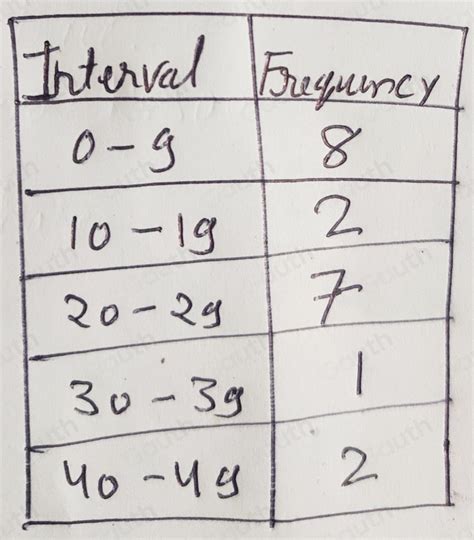 Interval Frequency
0-9 8
10-19 2
20-29 7
30-39 1
40-49 2